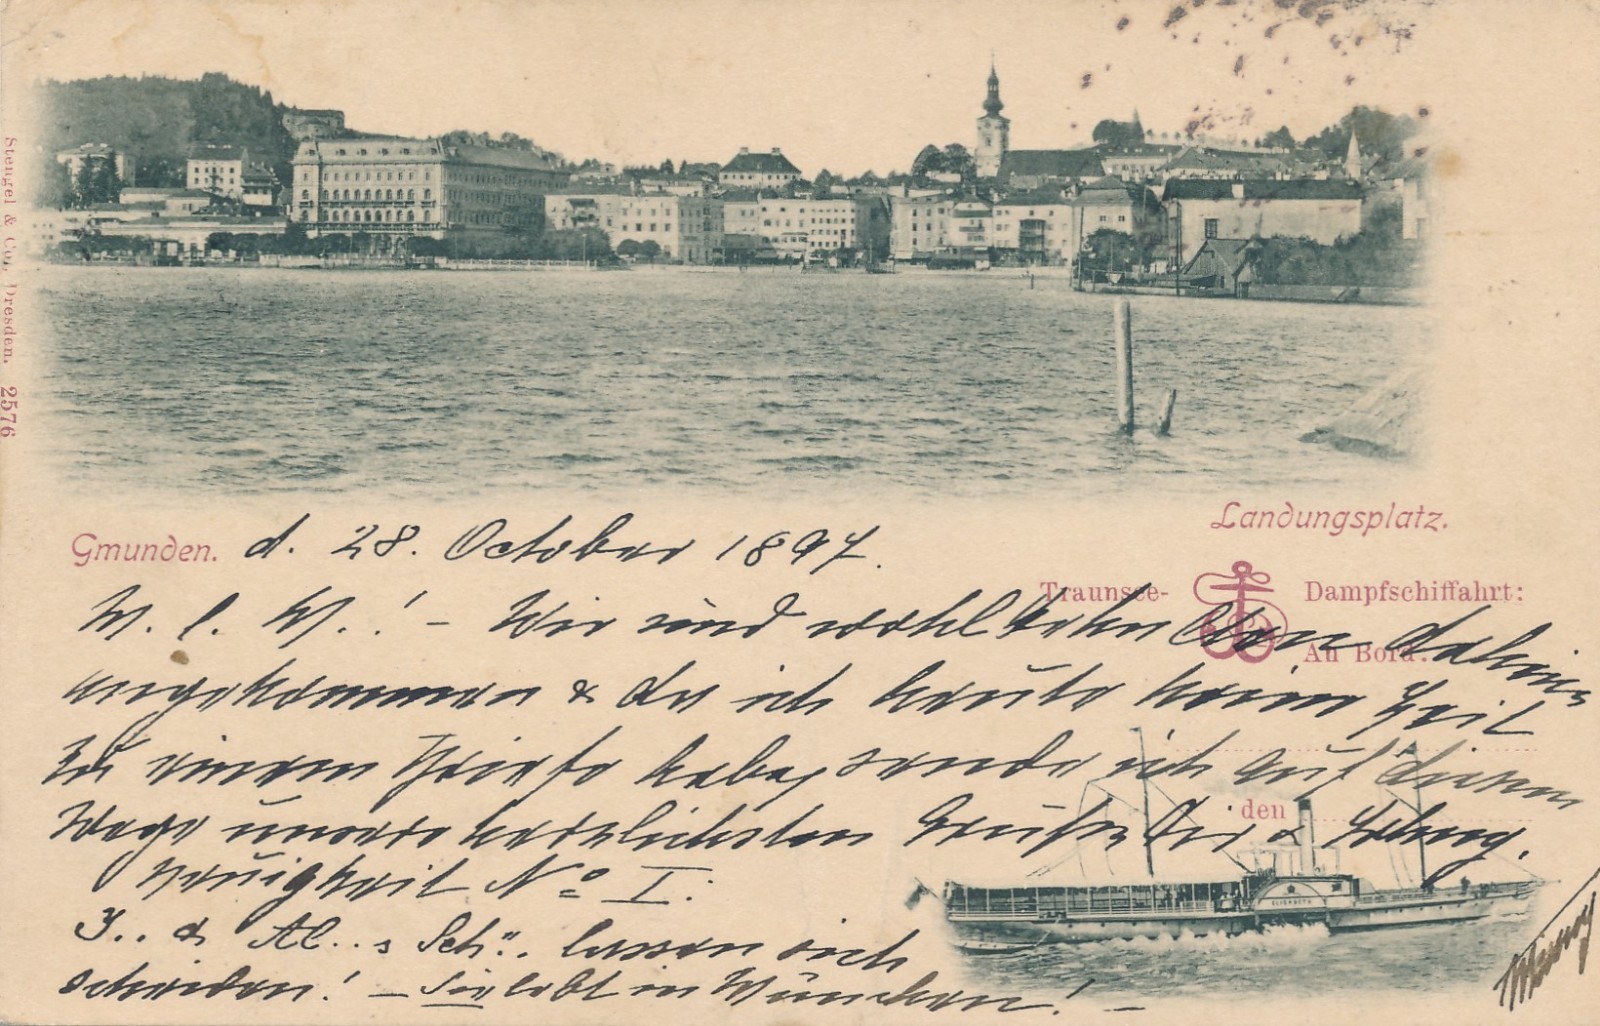 Stengel & Co., Dresden. 2576
Landungsplatz.
Gmunden. d. 28. October 1897.
Traunsee- Dampfschiffahrt:
An Bord:
M. l. M.! – Wir sind wohlbehalten daheim
angekommen & da ich heute keine Zeit
zu einem Briefe habe, sende ich auf diesem
Wege unsere herzlichsten Grüße Dir &
den
Neuigkeit No I:
J.. & Al..s Sch.. lassen sich
scheiden! – Sie lebt in München! –
ELISABETH